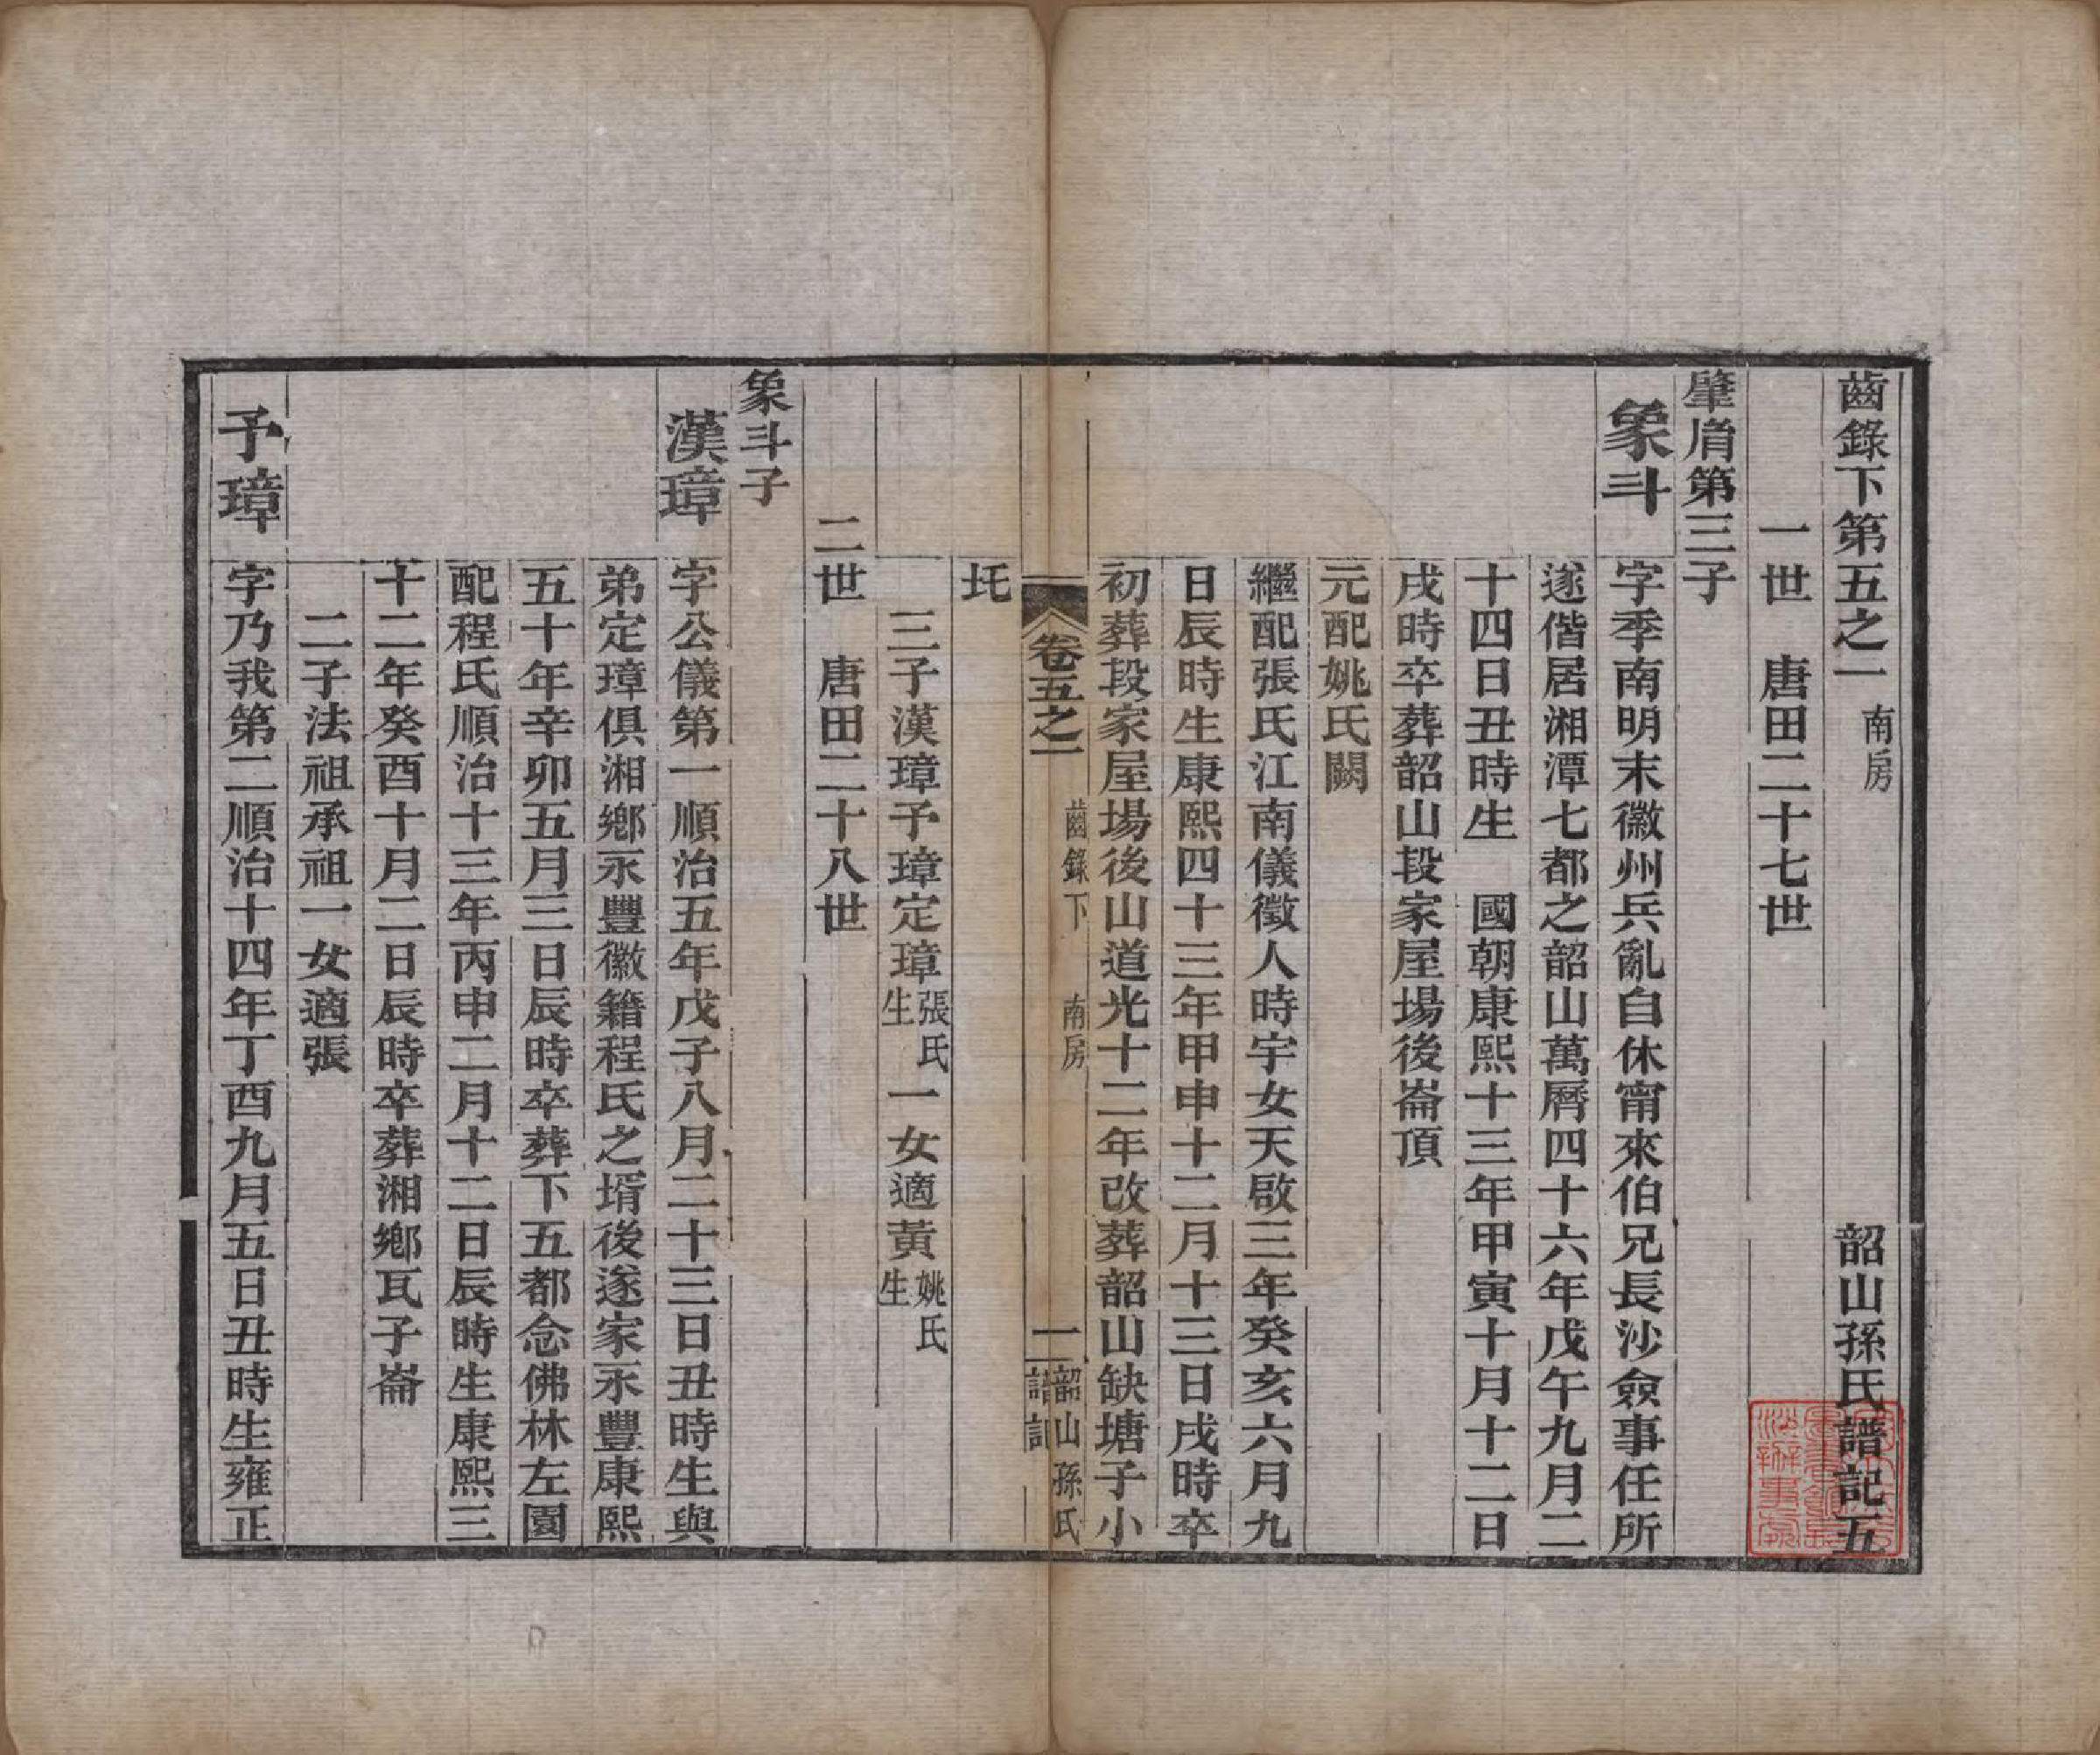 齒錄下第五之一 南房 韶山孫氏譜記五
一世 唐田二十七世
肇㡽第三子
象斗 字季南明末徽州兵亂自休甯來伯兄長沙僉事任所
遂偕居湘潭七都之韶山萬曆四十六年戊午九月二
十四日丑時生 國朝康熙十三年甲寅十月十二日
戌時卒葬韶山段家屋場後崙頂
元配姚氏闕
繼配張氏江南儀徵人時宇女天啟三年癸亥六月九
日辰時生康熙四十三年甲申十二月十三日戌時卒
初葬段家屋場後山道光十二年改葬韶山缺塘子小
卷五之一 齒錄下 南房 一 韶山孫氏譜記
圫
三子漢璋予璋定璋張氏生一女適黃姚氏生
二世 唐田二十八世
象斗子
漢璋 字公儀第一順治五年戊子八月二十三日丑時生與
弟定璋俱湘鄉永豐徽籍程氏之壻後遂家永豐康熙
五十年辛卯五月三日辰時卒葬下五都念佛林左園
配程氏順治十三年丙申二月十二日辰時生康熙三
十二年癸酉十月二日辰時卒葬湘鄉瓦子崙
二子法祖承祖一女適張
予璋 字乃我第二順治十四年丁酉九月五日丑時生雍正